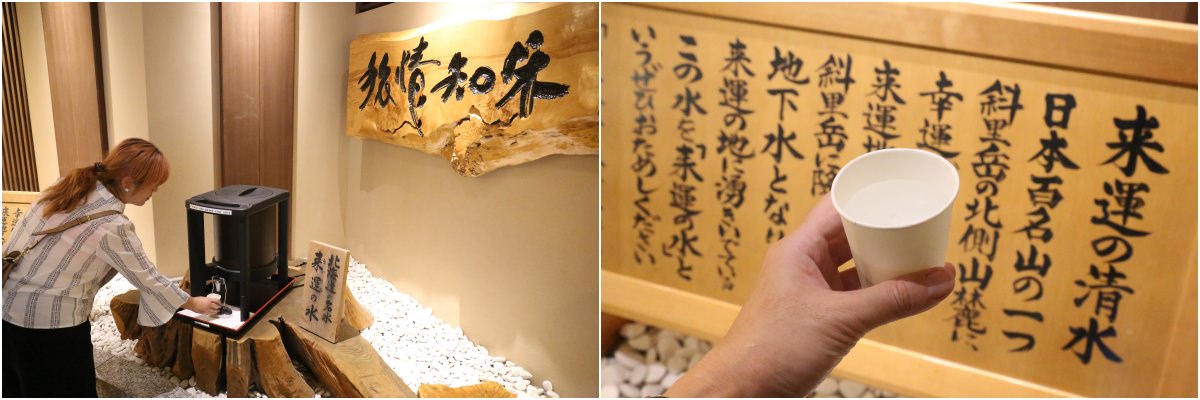 旅情知床
北海道の名水
来運の水
来運の清水
日本百名山の一つ
斜里岳の北側山麓に、
幸運
来運
斜里岳に降
地下水となり
来運の地に湧きいでている
この水を「来運の水」と
いうぜひおためしください